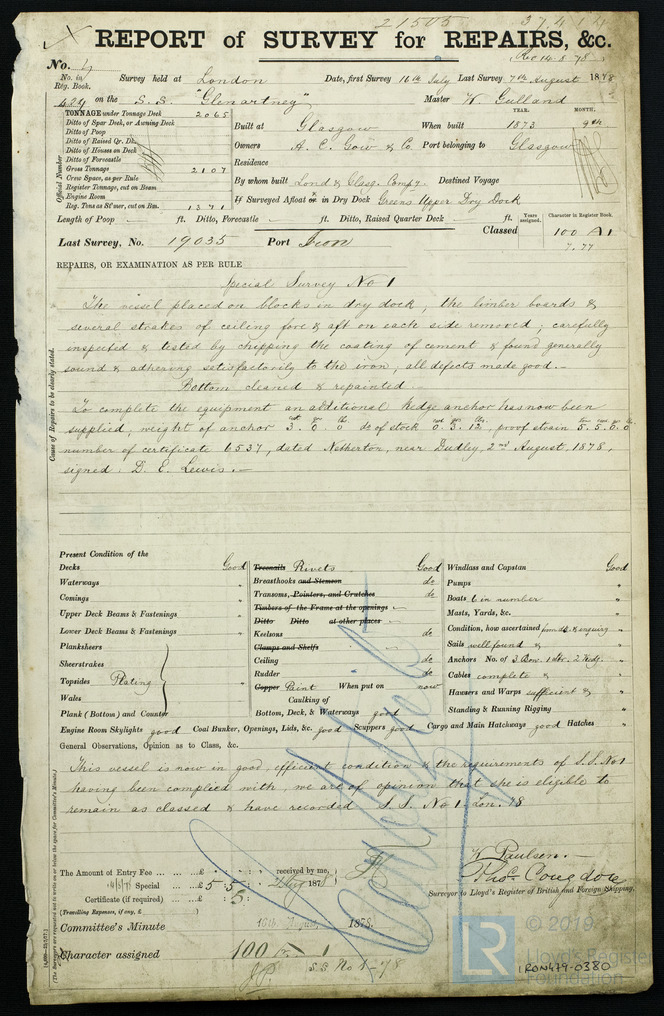 21505 37,414
REPORT of SURVEY for REPAIRS, &c.
Rec 14.8.78
No.
No. in Reg. Book. Survey held at London Date, first Survey 16th July Last Survey 7th August 1878
429 on the S.S. "Glenartney" Master W. Gulland
TONNAGE under Tonnage Deck 2065
Ditto of Spar Deck, or Awning Deck
Ditto of Poop
Ditto of Raised Qr. Dk.
Ditto of Houses on Deck
Ditto of Forecastle
Gross Tonnage 2107
Crew Space, as per Rule
Register Tonnage, cut on Beam
Engine Room
Reg. Tons as St'mer, cut on Bm. 1371
Official Number
YEAR. MONTH.
Built at Glasgow When built 1873 9th
Owners A. C. Gow & Co Port belonging to Glasgow
Residence
By whom built Lond & Glasg. Compy. Destined Voyage
If Surveyed Afloat or in Dry Dock Greens Upper Dry Dock
Length of Poop ft. Ditto, Forecastle ft. Ditto, Raised Quarter Deck ft.
Years assigned. Character in Register Book.
Classed 100 A1
7.77
Last Survey, No. 19035 Port Iron
REPAIRS, OR EXAMINATION AS PER RULE
Special Survey No 1
The vessel placed on blocks in dry dock, the limber boards &
several strakes of ceiling fore & aft on each side removed; carefully
inspected & tested by chipping the coating of cement & found generally
sound & adhering satisfactorily to the iron, all defects made good.–
Bottom cleaned & repainted.–
To complete the equipment an additional kedge anchor has now been
supplied, weight of anchor 3. 0. 0 do of stock 0. 3. 12, proof strain 5. 5. 0. 0
number of certificate 6537, dated Netherton, near Dudley, 2nd August, 1878,
signed. D. E. Lewis.–
Cause of Repairs to be clearly stated.
Present Condition of the
Decks Good
Waterways "
Comings "
Upper Deck Beams & Fastenings "
Lower Deck Beams & Fastenings "
Planksheers
Sheerstrakes
Topsides Plating "
Wales
Plank (Bottom) and Counter
Treenails Rivets Good
Breasthooks and Stemson do
Transoms, Pointers, and Crutches do
Timbers of the Frame at the openings
Ditto Ditto at other places
Keelsons do
Clamps and Shelfs
Ceiling do
Rudder do
Copper Paint When put on now
Caulking of
Bottom, Deck, & Waterways good
Windlass and Capstan Good
Pumps "
Boats 6 in number "
Masts, Yards, &c. "
Condition, how ascertained from do. & enquiry "
Sails well found & "
Anchors No. of 3 Bow. 1 Str. 2 Kedg. "
Cables complete & "
Hawsers and Warps sufficient & "
Standing & Running Rigging "
Engine Room Skylights good Coal Bunker, Openings, Lids, &c. good Scuppers good Cargo and Main Hatchways good Hatches "
General Observations, Opinion as to Class, &c.
This vessel is now in good, efficient condition & the requirements of S.S. No 1
having been complied with, we are of opinion that she is eligible to
remain as classed & have recorded S.S. No 1–Lon. 78
W. Paulsen.–
Thos Congdon
Surveyor to Lloyd's Register of British and Foreign Shipping.
The Amount of Entry Fee ... £ : : received by me,
Special ... £5 : 5 : Aug 1878
Certificate (if required) ... £ : 5 :
(Travelling Expenses, if any, £ )
Committee's Minute 16th August, 1878.
Character assigned 100 A 1
S.S. No 1–78
(The Surveyors are requested not to write on or below the space for Committee's Minute.)
© 2019
Lloyd's Register
Foundation
LR
IRON479-0380